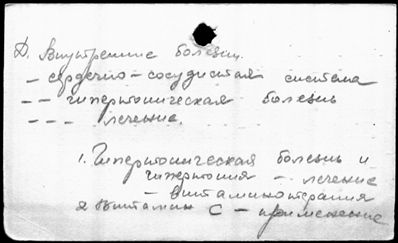 Д. Внутренние болезни.
– сердечно-сосудистая система
– – гипертоническая болезнь
– – – лечение.
1. Гипертоническая болезнь и
гипертония – лечение
– витаминотерапия
2 Витамин С – применение